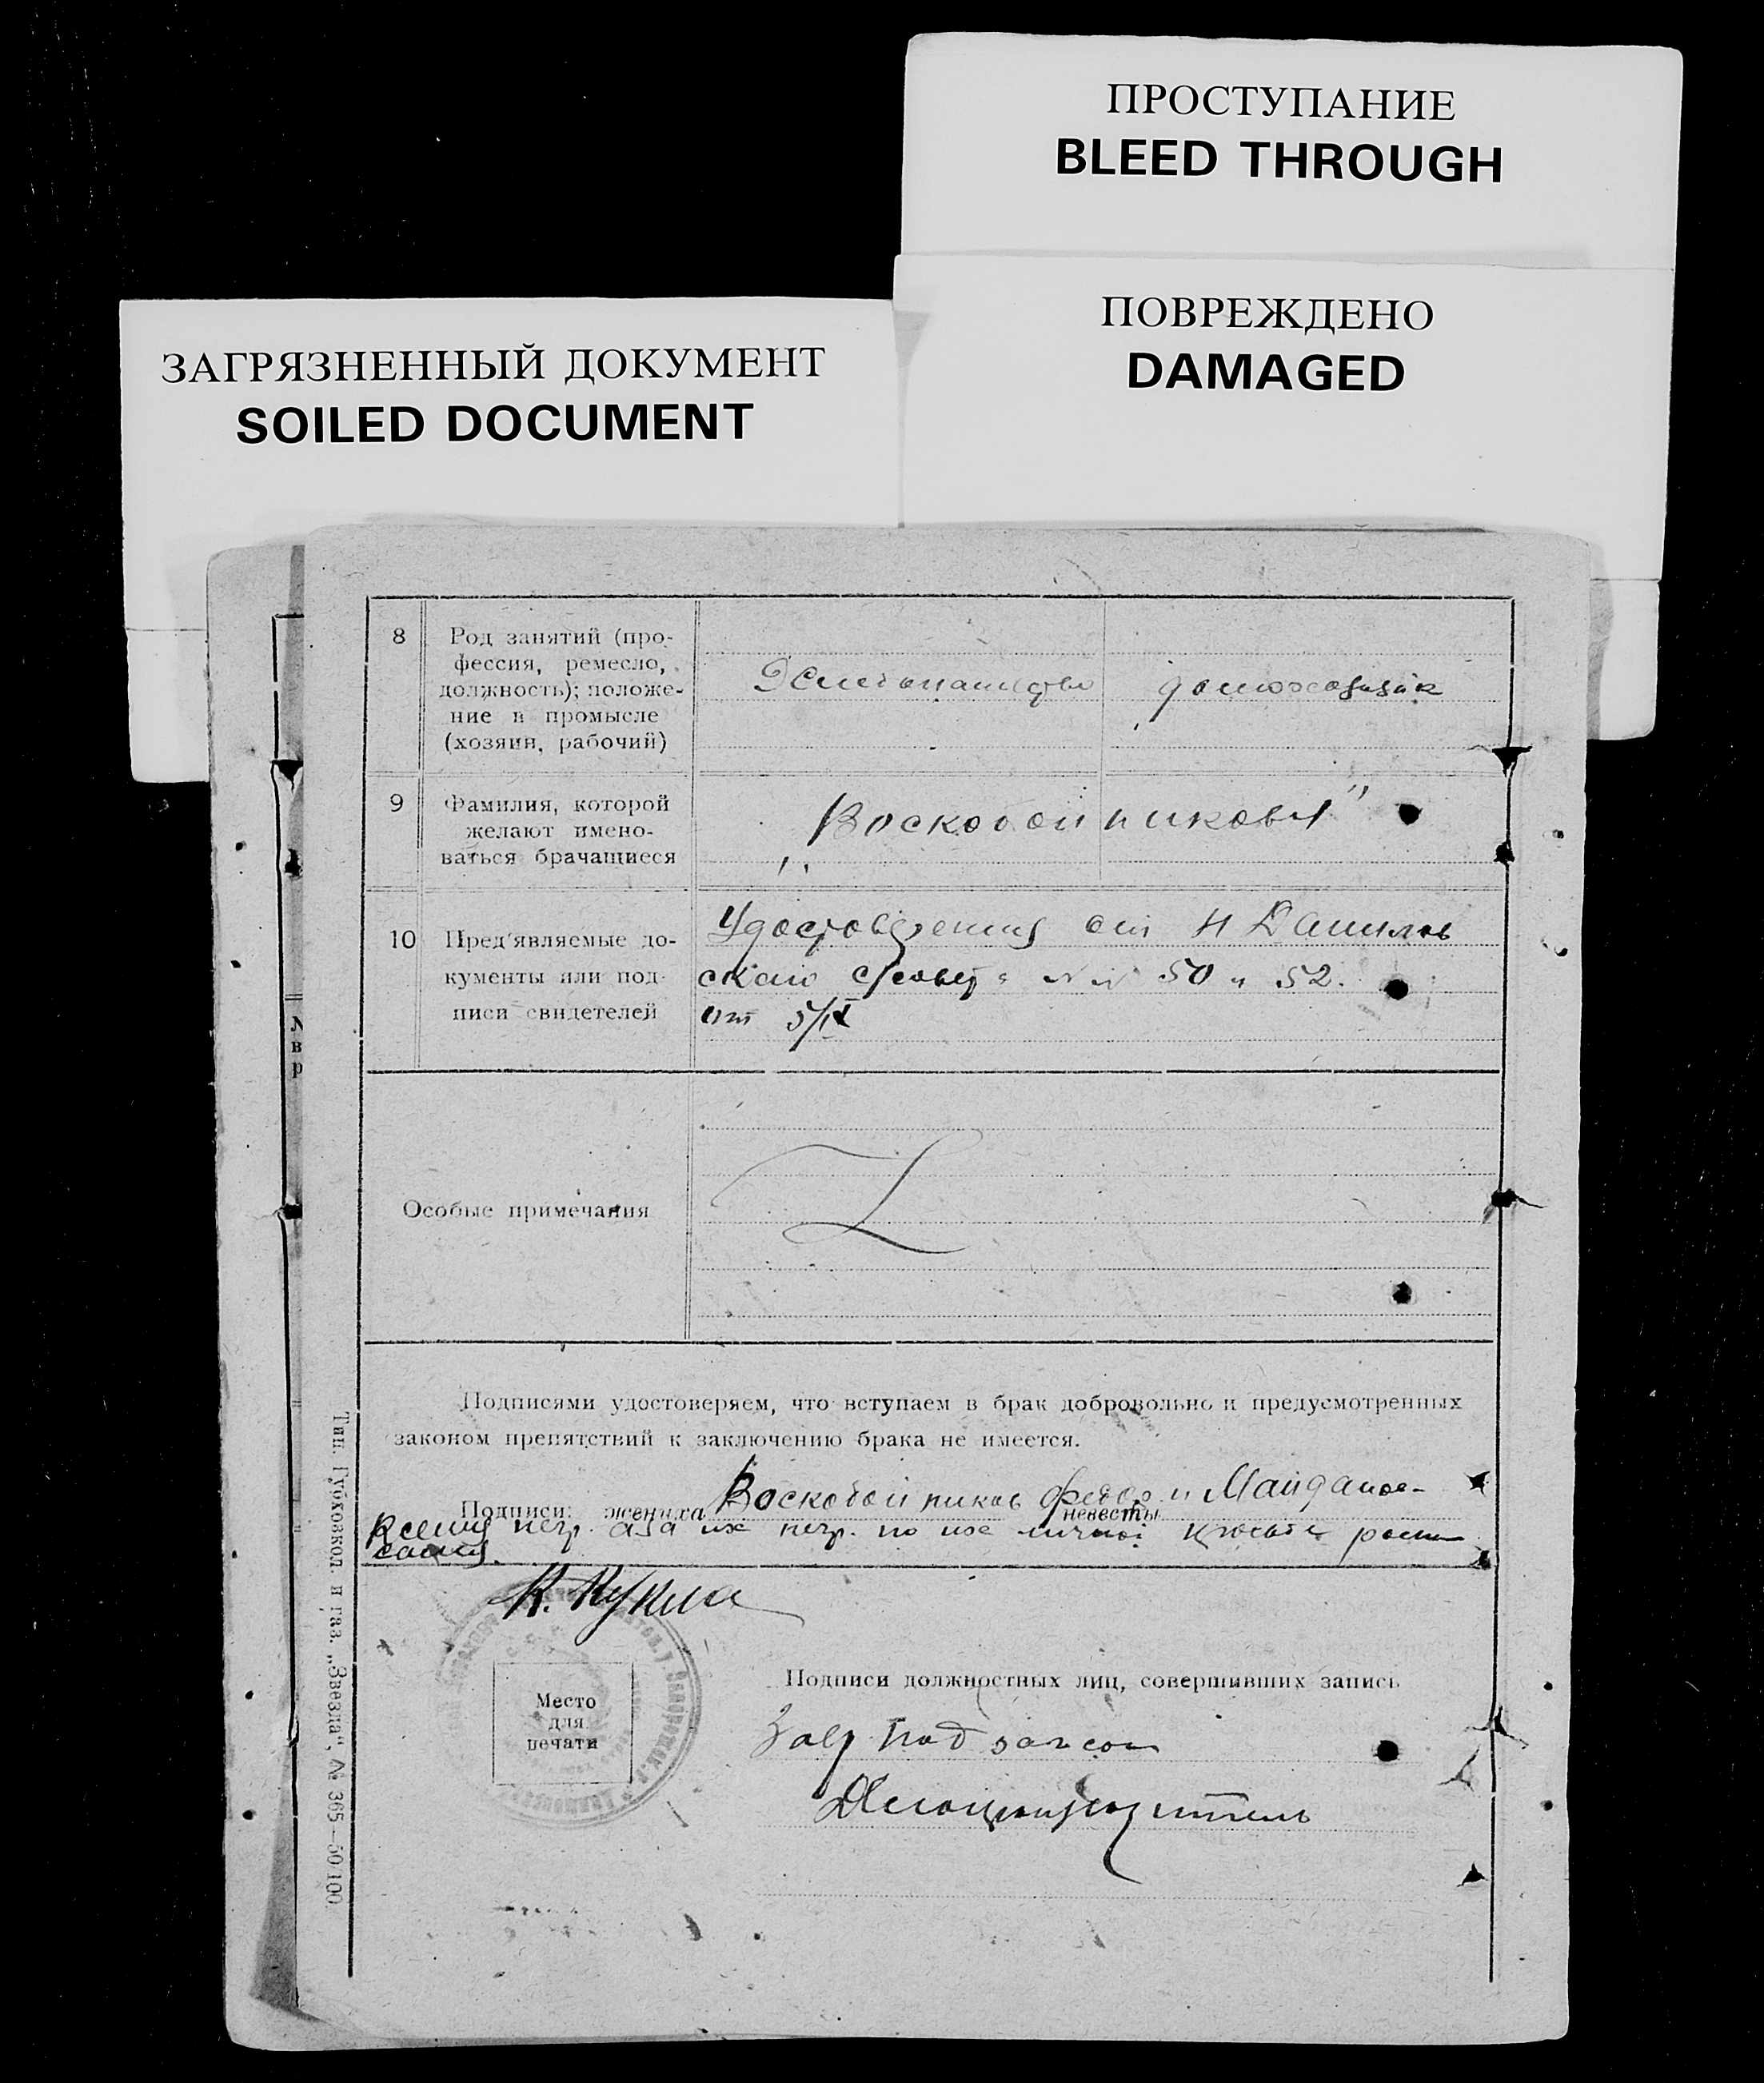 ПРОСТУПАНИЕ
BLEED THROUGH
ПОВРЕЖДЕНО
DAMAGED
ЗАГРЯЗНЕННЫЙ ДОКУМЕНТ
SOILED DOCUMENT
8
Род занятий (про-
фессия, ремесло,
должность); положе-
ние в промысле
(хозяин, рабочий)
домохозяйк
9
Фамилия, которой
желают имено-
ваться брачащиеся
"Воскобойниковы"
10
Пред'являемые до-
кументы или под-
писи свидетелей
Удостоверения от Н Данилов
скаго с/совета № № 50 и 52.
от 5/IX
Особые примечания
Подписями удостоверяем, что вступаем в брак добровольно и предусмотренных
законом препятствий к заключению брака не имеется.
Подписи: жениха Воскобойников Федор и Майданов-
невесты
негр. а за их негр. по их личной просьбе распи
сался.
Место
для
печати
Подписи должностных лиц, совершивших запись
Зав Под загсом
Делопроизитель
Тип. Губховкол. и газ. „Звезда", № 365—50/100
№
в
р